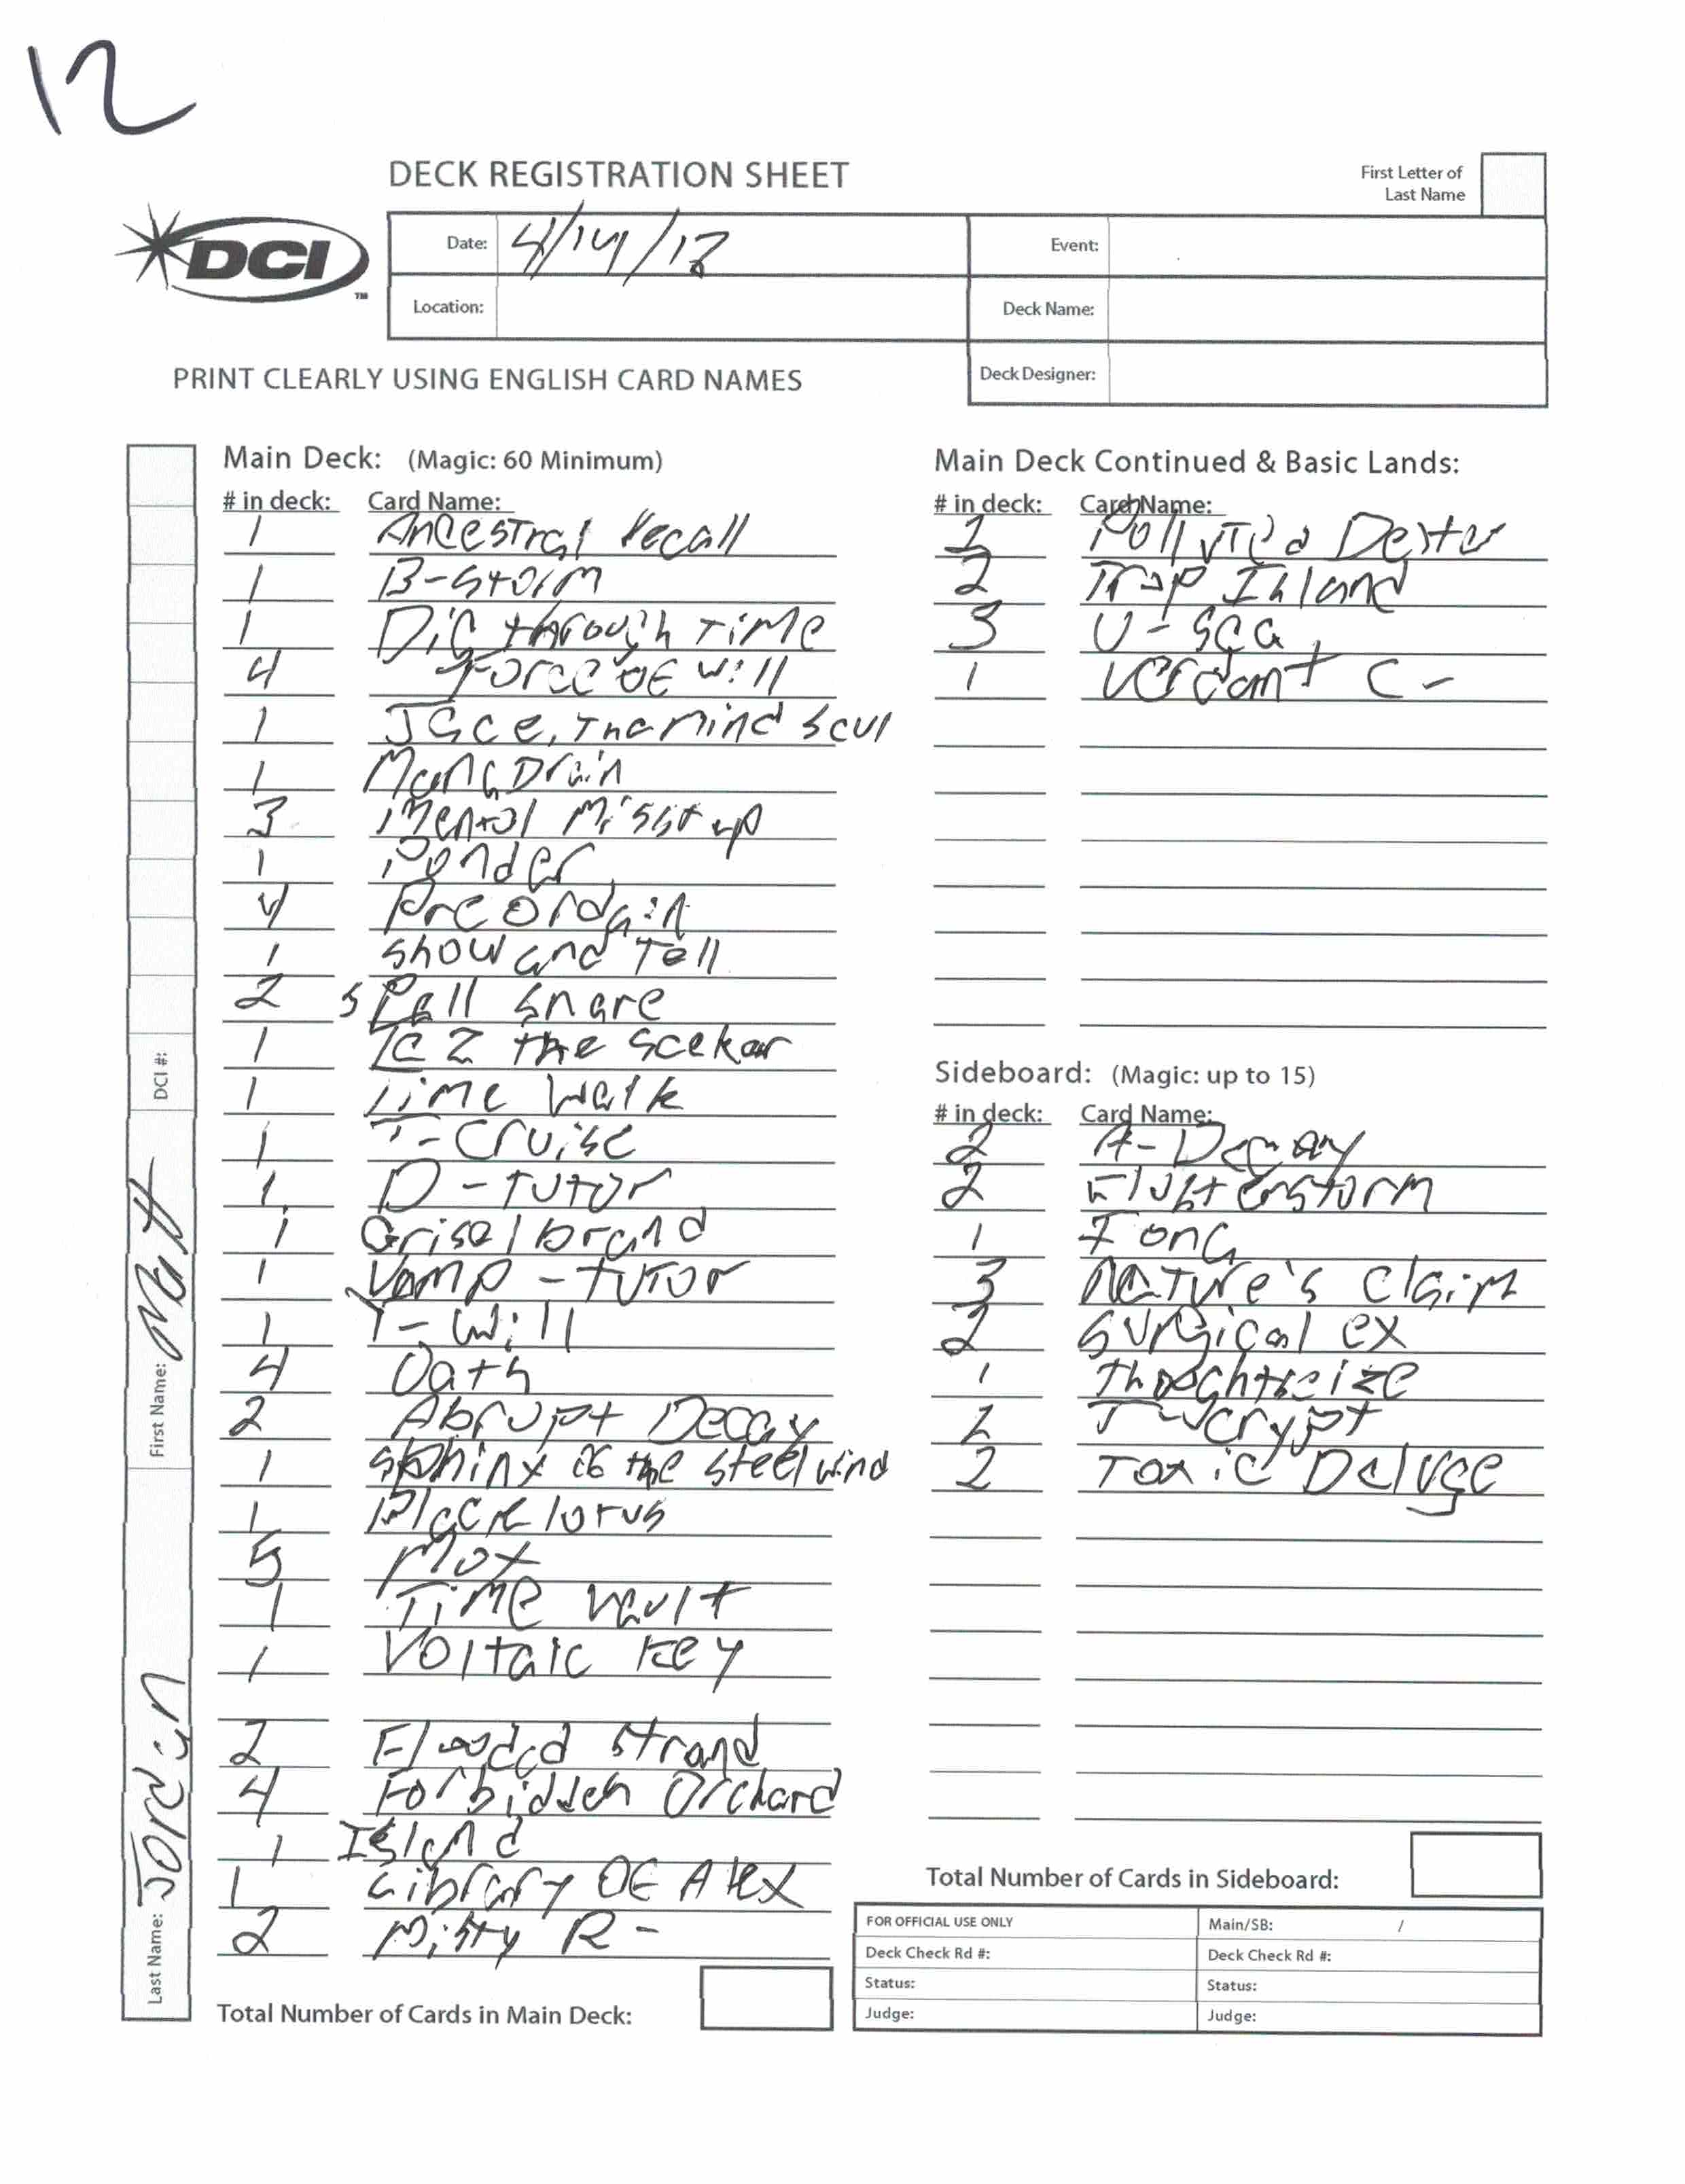 12
DECK REGISTRATION SHEET
First Letter of
Last Name
DCI
TM
Date: 4/14/18
Event:
Location:
Deck Name:
PRINT CLEARLY USING ENGLISH CARD NAMES
Deck Designer:
Main Deck: (Magic: 60 Minimum)
# in deck: Card Name:
1 Ancestral Recall
1 B-Storm
1 Dig through Time
4 Force of Will
1 Jace, The mind Scul
1 Mana Drain
3 Mental Misstep
1 Ponder
4 Preordain
1 Show and Tell
2 Spell Snare
1 Tez the Seeker
1 Time Walk
1 T-Cruise
1 D-Tutor
1 Griselbrand
1 Vamp-Tutor
1 Y-Will
4 Oath
2 Abrupt Decay
1 Sphinx of the Steelwind
1 Black lotus
5 Mox
1 Time Vault
1 Voltaic Key
2 Flooded Strand
4 Forbidden Orchard
1 Island
1 Library OF Alex
2 Misty R-
Total Number of Cards in Main Deck:
Main Deck Continued & Basic Lands:
# in deck: Card Name:
Polluted Delta
2 Trop Island
3 U-Sea
1 Verdant C-
Sideboard: (Magic: up to 15)
# in deck: Card Name:
2 A-Decay
2 Flusterstorm
1
3 Nature's Claim
2 Surgical ex
1 Thoughtseize
T-Crypt
2 Toxic Deluge
Total Number of Cards in Sideboard:
FOR OFFICIAL USE ONLY
Main/SB: /
Deck Check Rd #:
Deck Check Rd #:
Status:
Status:
Judge:
Judge:
DCI #:
First Name: Matt
Last Name: Jordan